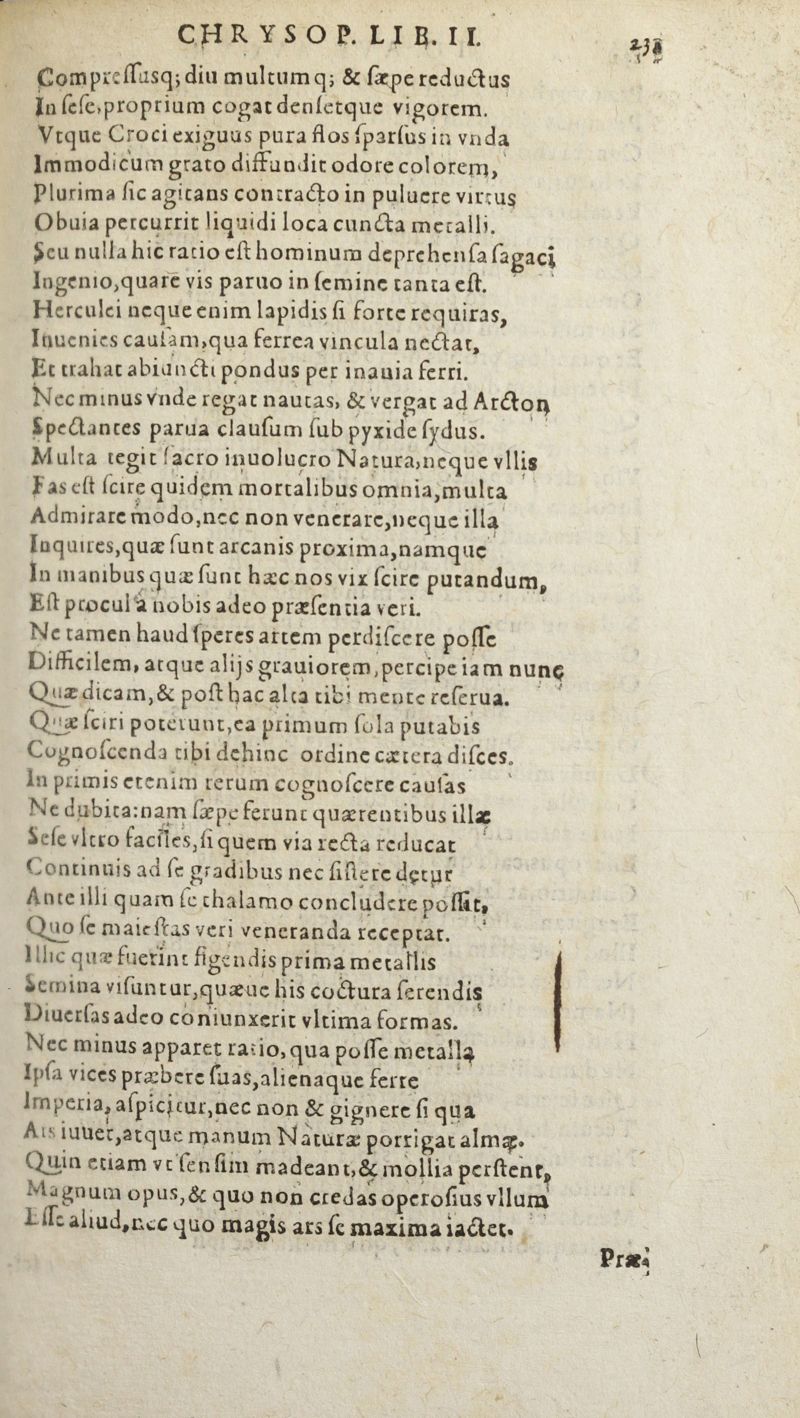 CHRYSOP. LIB. II.
238
Compreſſusq; diu multumq; & ſæpe reductus
In ſeſe, proprium cogat denſetque vigorem.
Vtque Croci exiguus pura flos ſparſus in vnda
Immodicum grato diffundit odore colorem,
Plurima ſic agitans contracto in puluere virtus
Obuia percurrit liquidi loca cuncta metalli.
Seu nulla hic ratio eſt hominum deprehenſa ſagaci
Ingenio, quare vis paruo in ſemine tanta eſt.
Herculei neque enim lapidis ſi forte requiras,
Inuenies cauſam, qua ferrea vincula nectat,
Et trahat abiuncti pondus per inania ferri.
Nec minus vnde regat nautas, & vergat ad Arcton
Spectantes parua clauſum ſub pyxide ſydus.
Multa tegit ſacro inuolucro Natura, neque vllis
Fas eſt ſcire quidem mortalibus omnia, multa
Admirare modo, nec non venerare, neque illa
Inquires, quæ ſunt arcanis proxima, namque
In manibus quæ ſunt hæc nos vix ſcire putandum,
Eſt procul à nobis adeo præſentia veri.
Ne tamen haud ſperes artem perdiſcere poſſe
Difficilem, atque alijs grauiorem, percipe iam nunc
Quæ dicam, & poſt hac alta tibi mente reſerua.
Quæ ſciri poterunt, ea primum ſola putabis
Cognoſcenda tibi dehinc ordine cætera diſces.
In primis etenim rerum cognoſcere cauſas
Ne dubita: nam ſæpe ferunt quærentibus illæ
Seſe vltro faciles, ſi quem via recta reducat
Continuis ad ſe gradibus nec ſiſtere detur
Ante illi quam ſe thalamo concludere poſſit,
Quo ſe maieſtas veri veneranda receptat.
Illic quæ fuerint figendis prima metallis
Semina viſuntur, quæue his coctura ferendis
Diuerſas adeo coniunxerit vltima formas.
Nec minus apparet ratio, qua poſſe metalla
Ipſa vices præbere ſuas, alienaque ferre
Imperia, aſpicitur, nec non & gignere ſi qua
Ars iuuet, atque manum Naturæ porrigat almæ.
Quin etiam vt ſenſim madeant, & mollia perſtent,
Magnum opus, & quo non credas operoſius vllum
Eſſe aliud, nec quo magis ars ſe maxima iactet.
Præ-